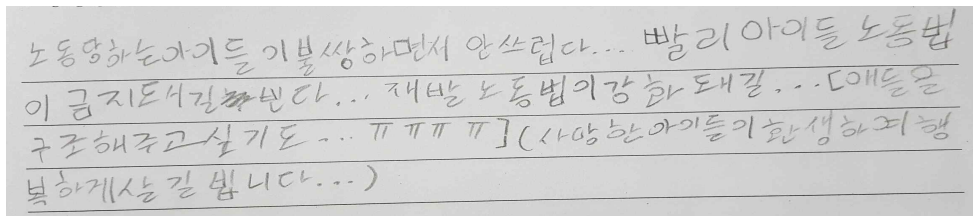 노동당하는아이들이불쌍하면서 안쓰럽다... 빨리아이들 노동법
이 금지돼길 빈다... 재발 노동법이강화 돼길...[애들을
구조해주고싶기도...ㅠㅠㅠㅠ](사망한아이들이환생하여행
복하게살길 빕니다...)